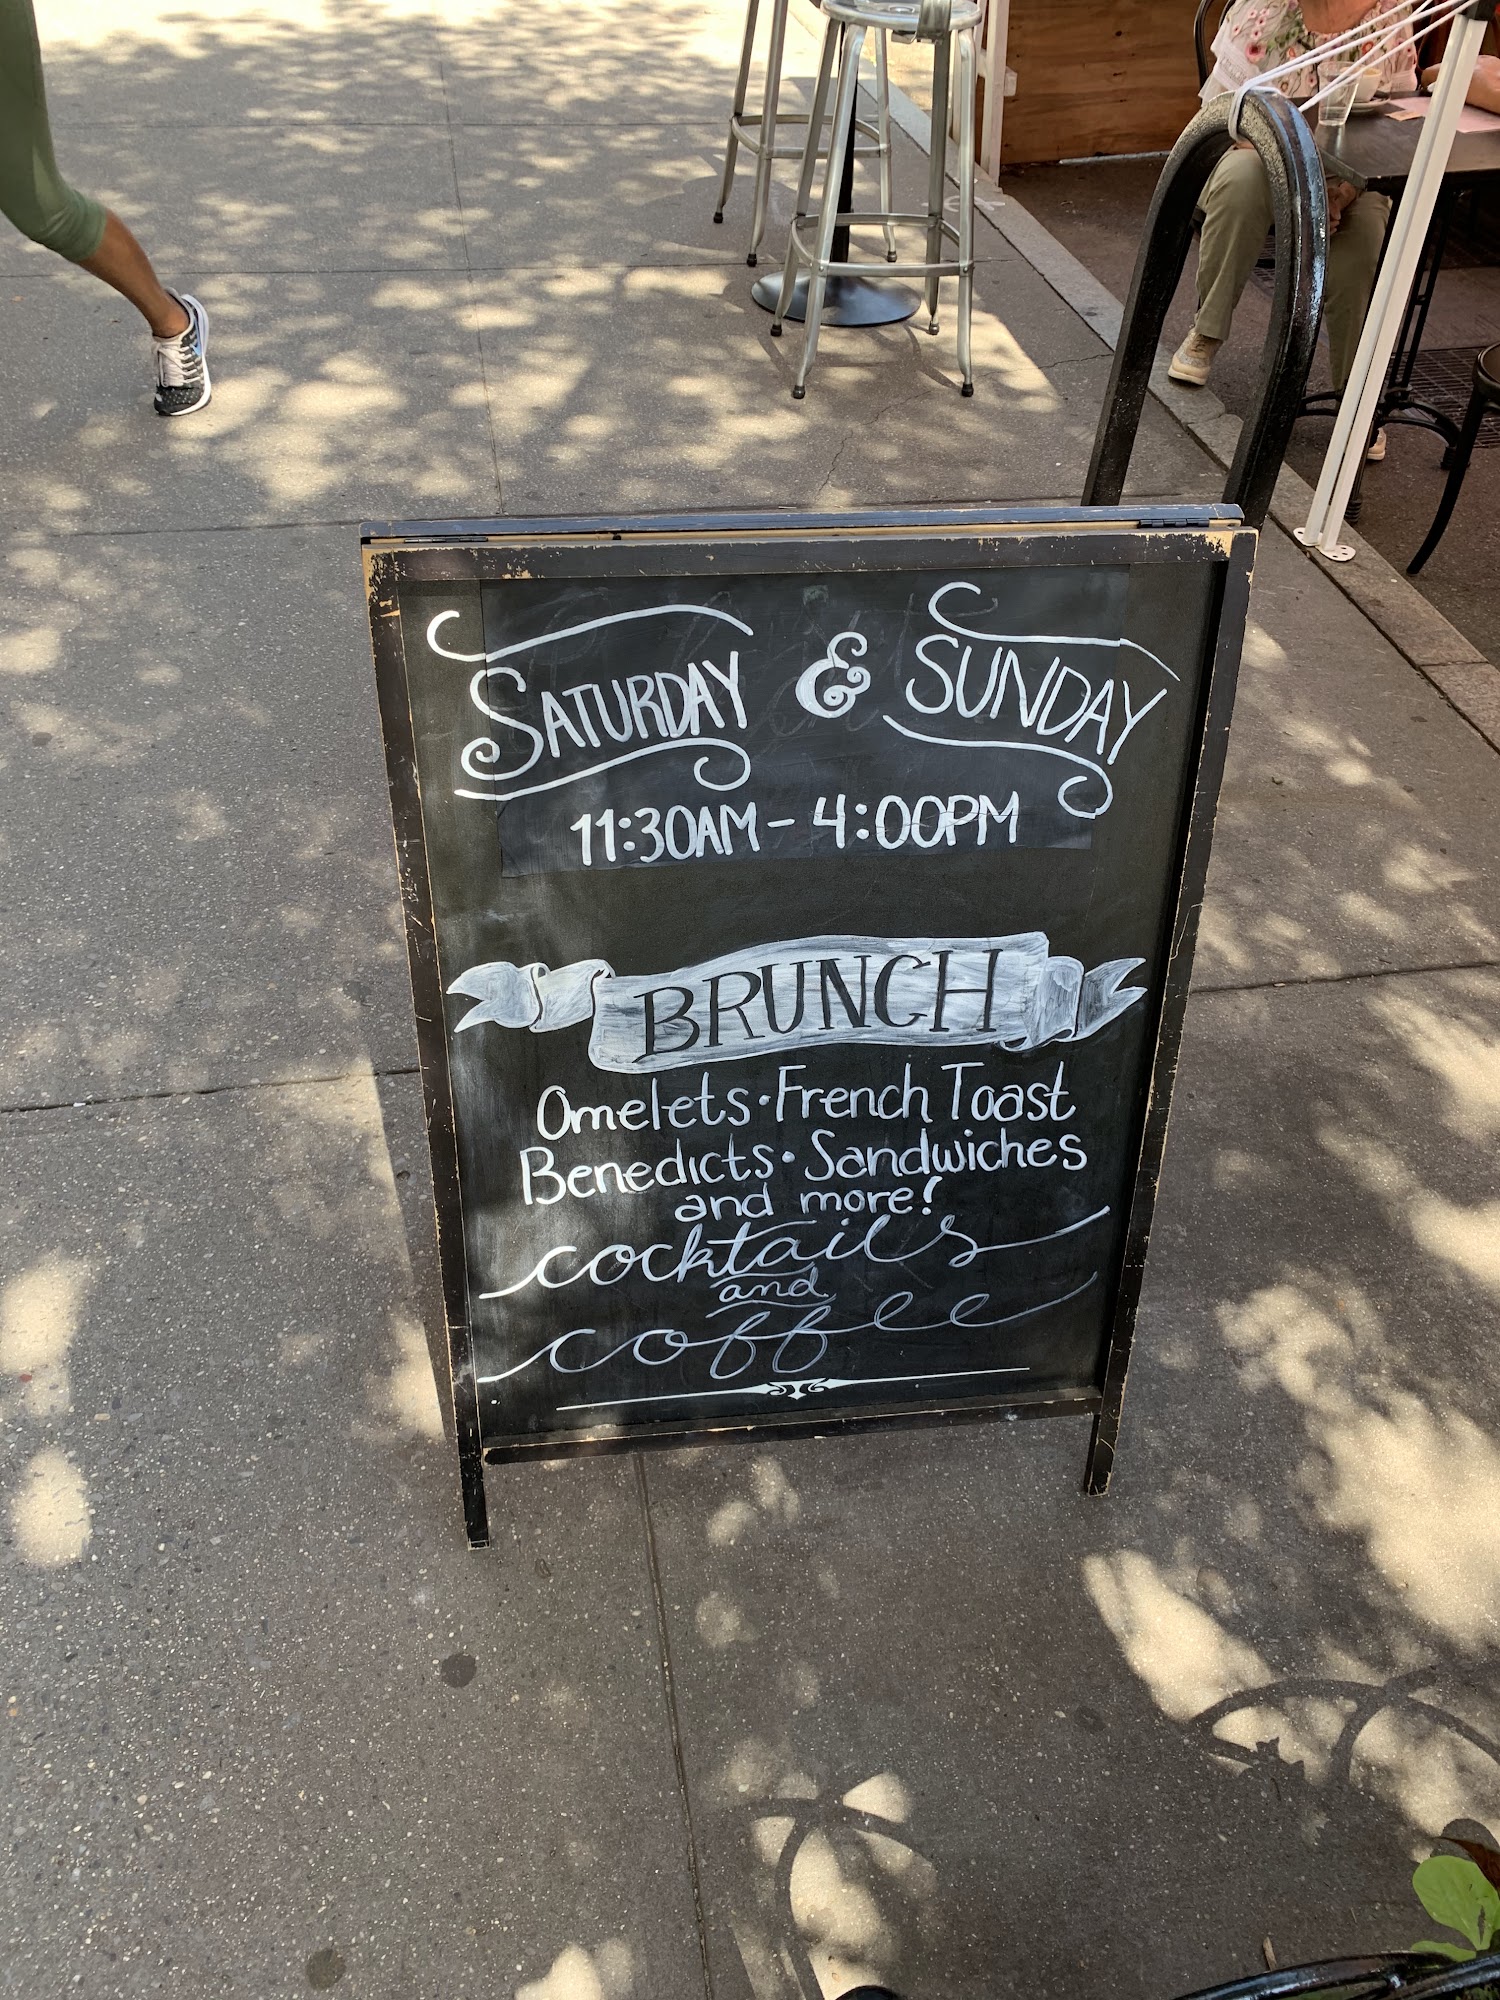 SATURDAY & SUNDAY
11:30AM - 4:00PM
BRUNCH
Omelets · French Toast
Benedicts · Sandwiches
and more!
cocktails
and
coffee